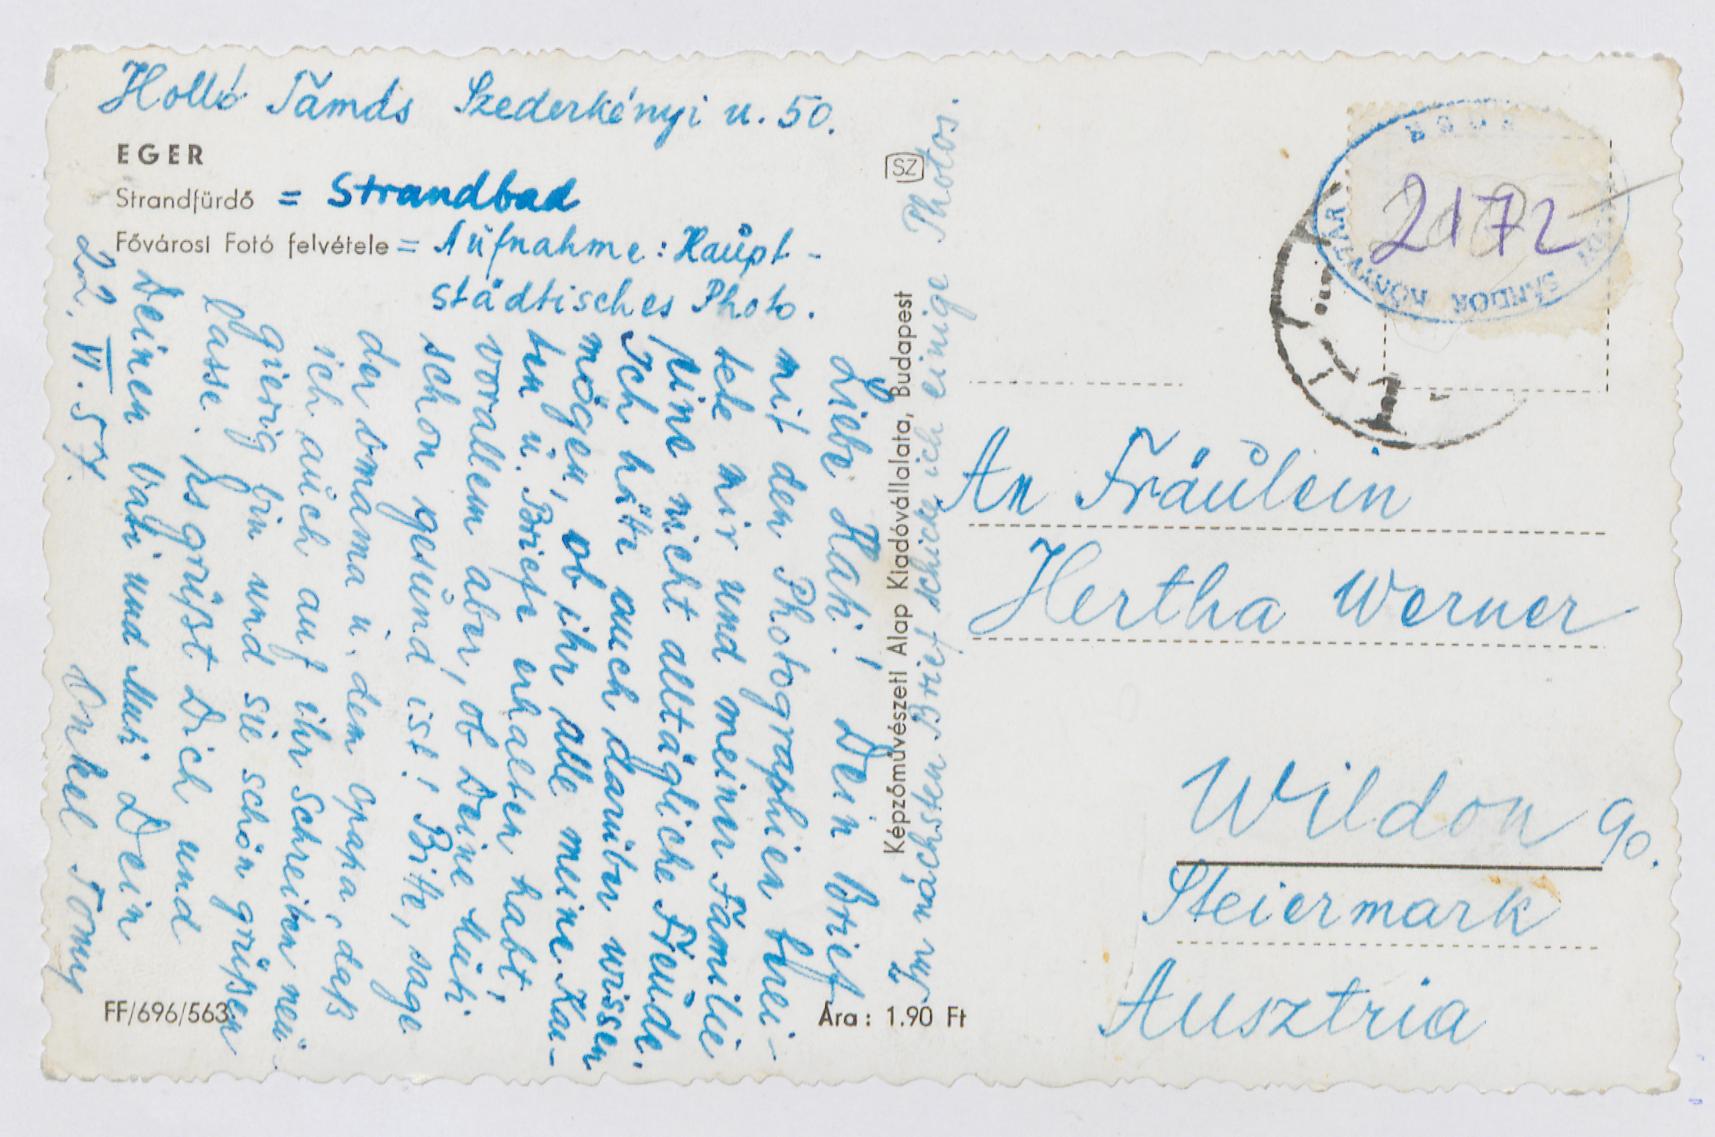 Holló Tamás Szederkényi u. 50.
EGER
Strandfürdő = Strandbad
Fővárosi Fotó felvétele = Aufnahme: Haupt-
städtisches Photo.
Liebe Hahi! Dein Brief
mit den Photographien berei-
tete mir und meiner Familie
eine nicht alltägliche Freude.
Ich hätte auch darüber wissen
mögen, ob ihr alle meine Kar-
ten u. Briefe erhalten habt,
vorallem aber, ob Deine Muti
schon gesund ist! Bitte, sage
der Omama u. dem Opapa, daß
ich auch auf ihr Schreiben neu-
gierig bin und sie schön grüßen
lasse. Es grüßt Dich und
Deinen Vati und Muti Dein
22. VI. 57. Onkel Tomy
Im nächsten Brief schicke ich einige Photos.
FF/696/563
Ára: 1.90 Ft
Képzőművészeti Alap Kiadóvállalata, Budapest
SZ
SÁNDOR KÖNYVTÁR
2172
An Fräulein
Hertha Werner
Wildon 90.
Steiermark
Ausztria